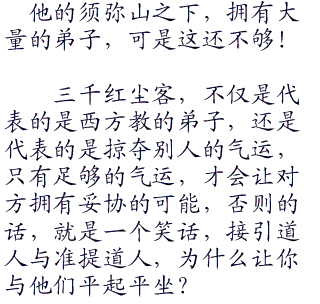 他的须弥山之下，拥有大
量的弟子，可是这还不够！
三千红尘客，不仅是代
表的是西方教的弟子，还是
代表的是掠夺别人的气运，
只有足够的气运，才会让对
方拥有妥协的可能，否则的
话，就是一个笑话，接引道
人与准提道人，为什么让你
与他们平起平坐？